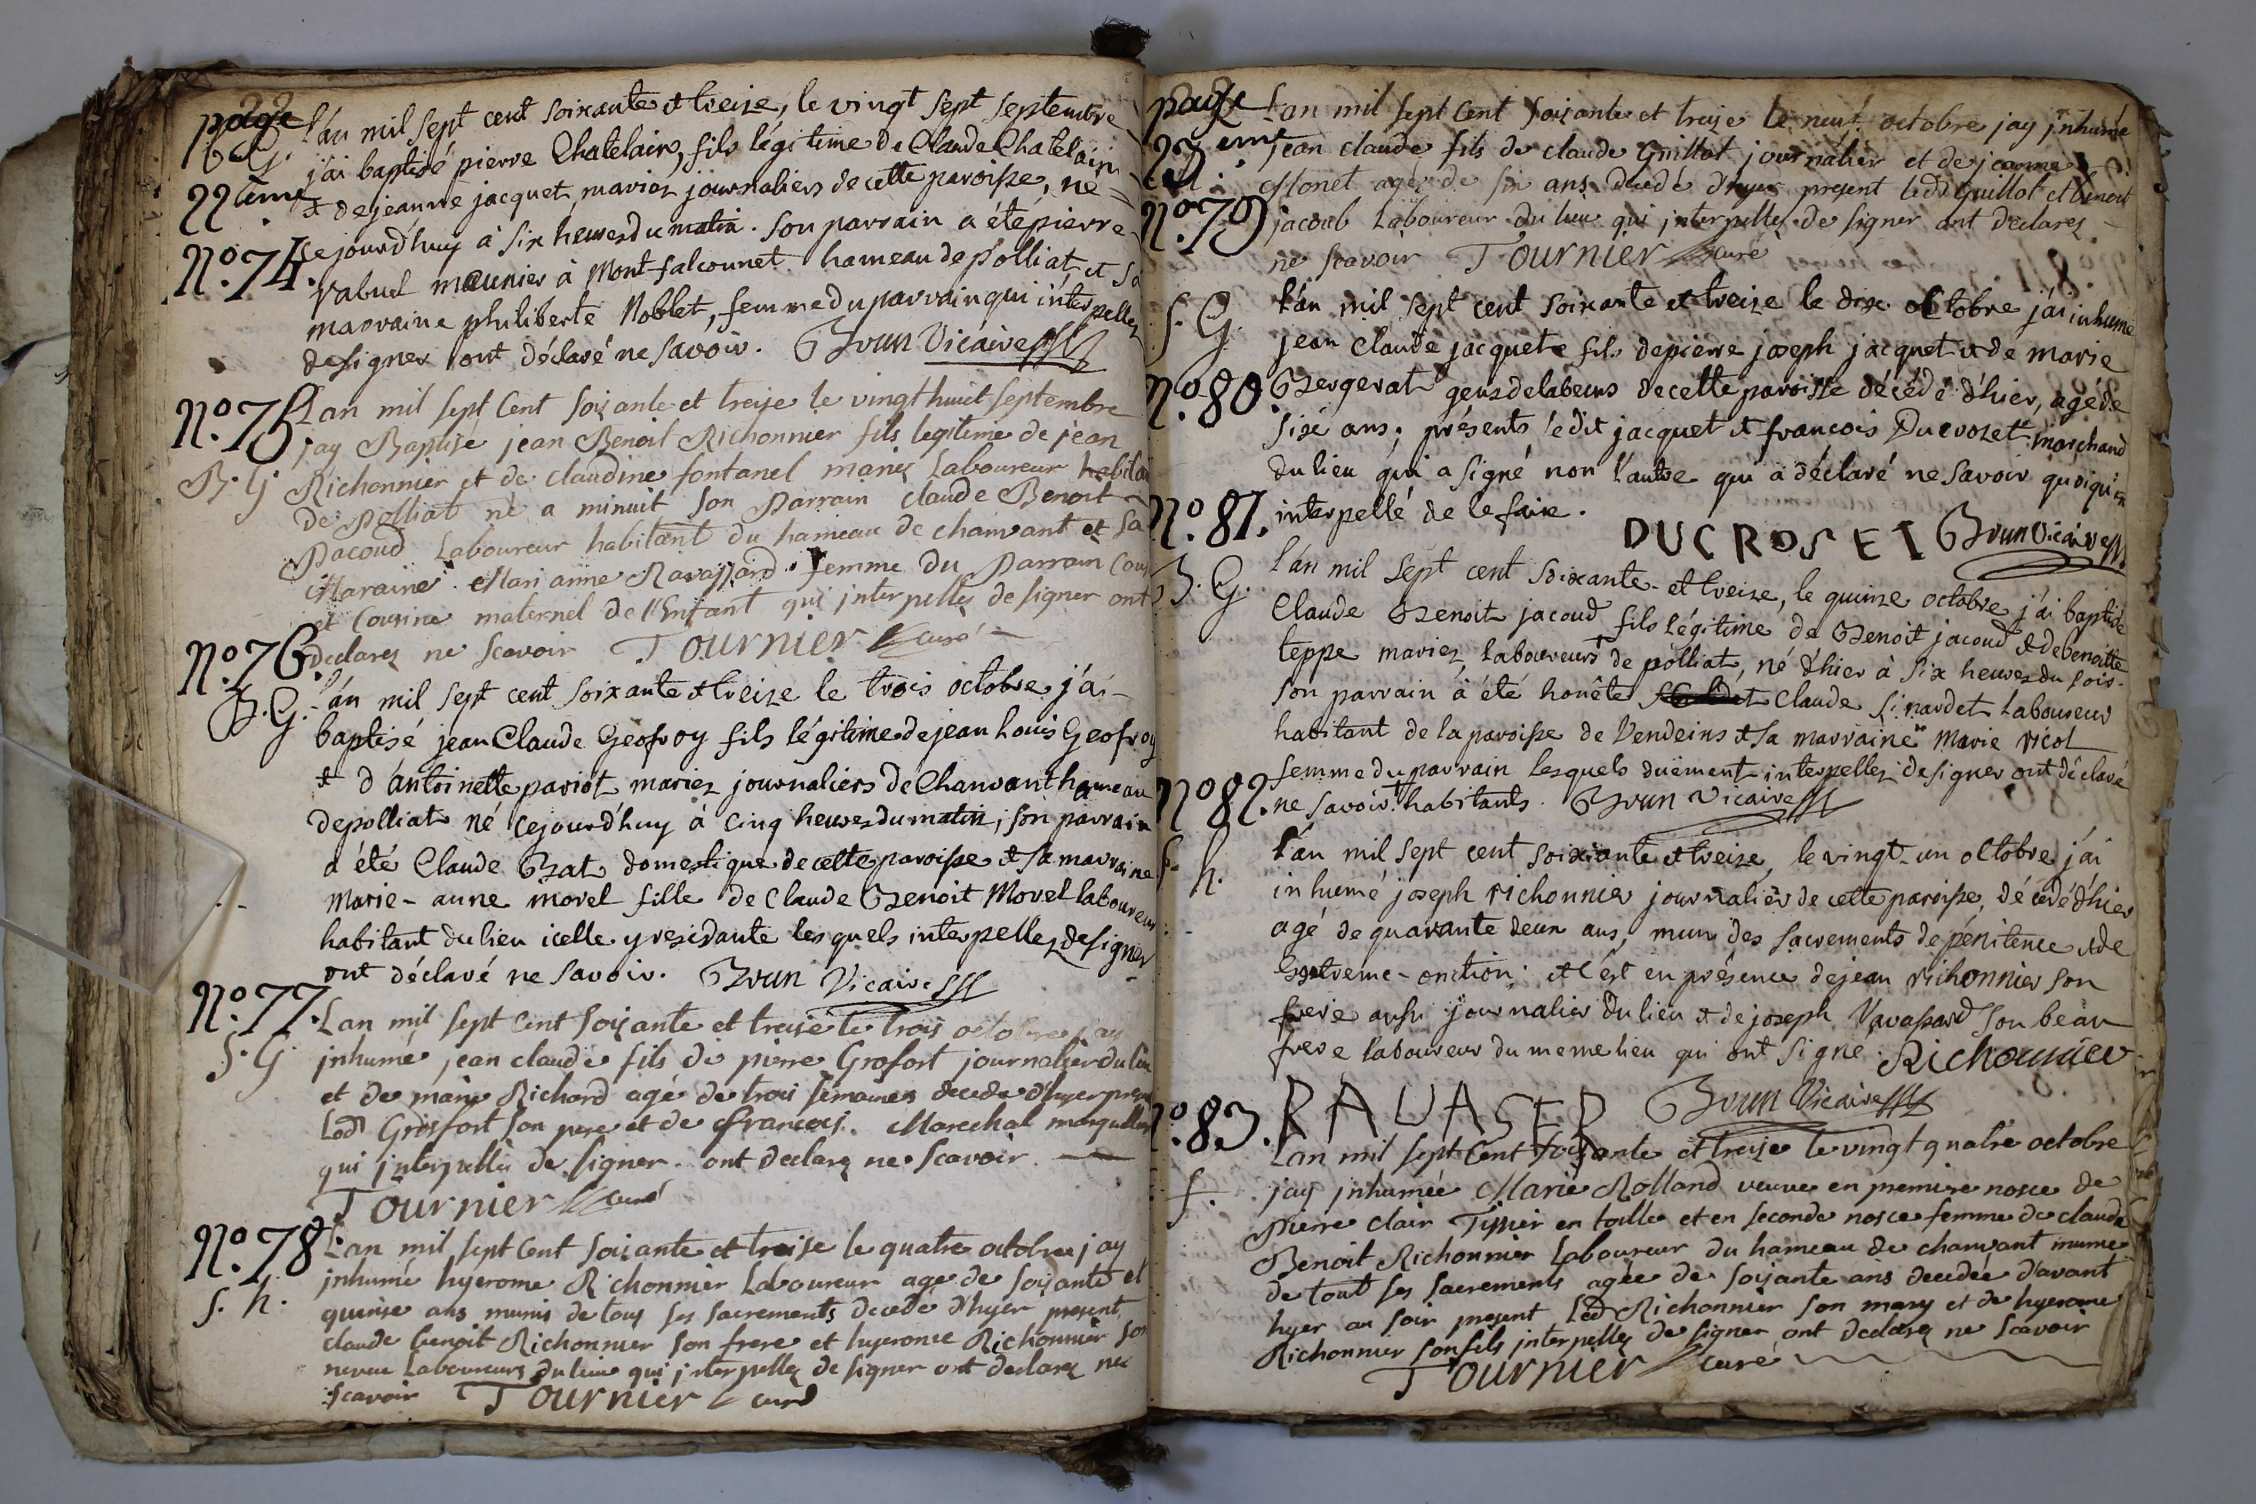 page
22
B. G.
22eme
N.º 74.
L'an mil sept cent soixante et treize, le vingt sept septembre
j'ai baptisé pierre Chatelain, fils légitime de Claude Chatelain
et de jeanne jacquet mariez journaliers de cette paroisse, né
cejourd'huy à six heures du matin. son parrain a été pierre
Vabuel meunier à Mont-falcounet hameau de polliat, et sa
marraine philiberte Noblet, femme du parrain qui interpellez
de signer ont déclaré ne savoir. Brun Vicaire
N.º 75
B. G
Lan mil sept Cent soixante et treize le vingt huit septembre
jay Baptisé jean Benoit Richonnier fils legitime de jean
Richonnier et de claudine fontanel mariez Laboureur habitan
de Polliat né a minuit son Parrain claude Benoit
Pacoud Laboureur habitant du hameau de chanvant et sa
Maraine Marianne Ravassard femme du Parrain Cousin
et Cousine maternel de l'Enfant qui interpellez de signer ont
declarez ne scavoir Tournier curé
N.º 76.
B. G.
L'an mil sept cent soixante et treize le trois octobre j'ai
baptisé jean Claude Geofroy fils légitime de jean Louis Geofroy
et d'antoinette pariot mariez journaliers de Chanvant hameau
de polliat né cejourd'huy à cinq heures du matin; son parrain
a été Claude Brat domestique de cette paroisse et sa marraine
Marie-anne morel fille de Claude Benoit Morel laboureur
habitant du lieu icelle y residante lesquels interpellez de signer
ont déclaré ne savoir. Brun Vicaire
N.º 77.
S. G
Lan mil sept Cent soixante et treize le trois octobre jay
inhumé jean claude fils de pierre Grosfort journalier du lieu
et de marie Richard agé de trois semaines decedé d'hyer present
Led Grosfort son pere et de francois Marechal marguillier
qui interpellez de signer ont declarez ne scavoir
Tournier curé
N.º 78
S. h.
Lan mil sept Cent soixante et treize le quatre octobre jay
inhumé hyerome Richonnier Laboureur age de soixante et
quinze ans munis de tous ses sacrements decedé d'hyer present
claude benoit Richonnier son frere et hyerome Richonnier son
neveu Laboureurs du lieu qui interpellez de signer ont declarez ne
scavoir Tournier curé
page
23eme
N.º 79
Lan mil sept Cent soixante et treize le neuf octobre jay inhumée
jean claude fils de claude Guillot journalier et de jeanne
Monet agez de six ans decedé d'hyer present led Guillot et benoit
jacoub Laboureur du lieu qui interpellez de signer ont declarez
ne scavoir Tournier curé
S. G.
N.º 80.
L'an mil sept cent soixante et treize le dix octobre j'ai inhumé
jean Claude jacquet fils de pierre joseph jacquet et de marie
Bergerat gens de labeurs de cette paroisse décédé d'hier, agé de
six ans; présents ledit jacquet et francois Ducrozet marchand
du lieu qui a signé non l'autre qui a déclaré ne savoir quoiqu'en
interpellé de le faire.
DUCROSET Brun Vicaire
N.º 81.
B. G.
L'an mil sept cent soixante et treize, le quinze octobre j'ai baptisé
Claude Benoit jacoud fils légitime de Benoit jacoud et de benoitte
teppe mariez laboureurs + de polliat, né d'hier à six heures du soir.
son parrain à été honête Claude sirardet laboureur
habitant de la paroisse de Vendeins et sa marraine Marie ricol
femme du parrain lesquels duëment interpellez de signer ont déclaré
ne savoir. + habitants. Brun Vicaire
N.º 82.
S. h.
L'an mil sept cent soixiante et treize, le vingt-un octobre j'ai
inhumé joseph richonnier journalier de cette paroisse, décédé d'hier
agé de quarante deux ans, muni des sacrements de pénitence et de
Extreme-onction; et c'est en présence de jean richonnier son
frere aussi journalier du lieu et de joseph Ravassard son beau
frere laboureur du meme lieu qui ont signé. Richonnier
RAVASER Brun Vicaire
N.º 83.
S.
Lan mil sept Cent soixante et treize le vingt quatre octobre
jay inhumée Marie Rolland veuve en premiere nosce de
pierre clair Tissier en toille et en seconde nosce femme de claude
Benoit Richonnier Laboureur du hameau de chanvant munie
de tout ses sacrements agée de soixante ans decedée d'avant
hyer au soir present Led Richonnier son mary et de hyerome
Richonnier son fils interpellez de signer ont declarez ne scavoir
Tournier curé